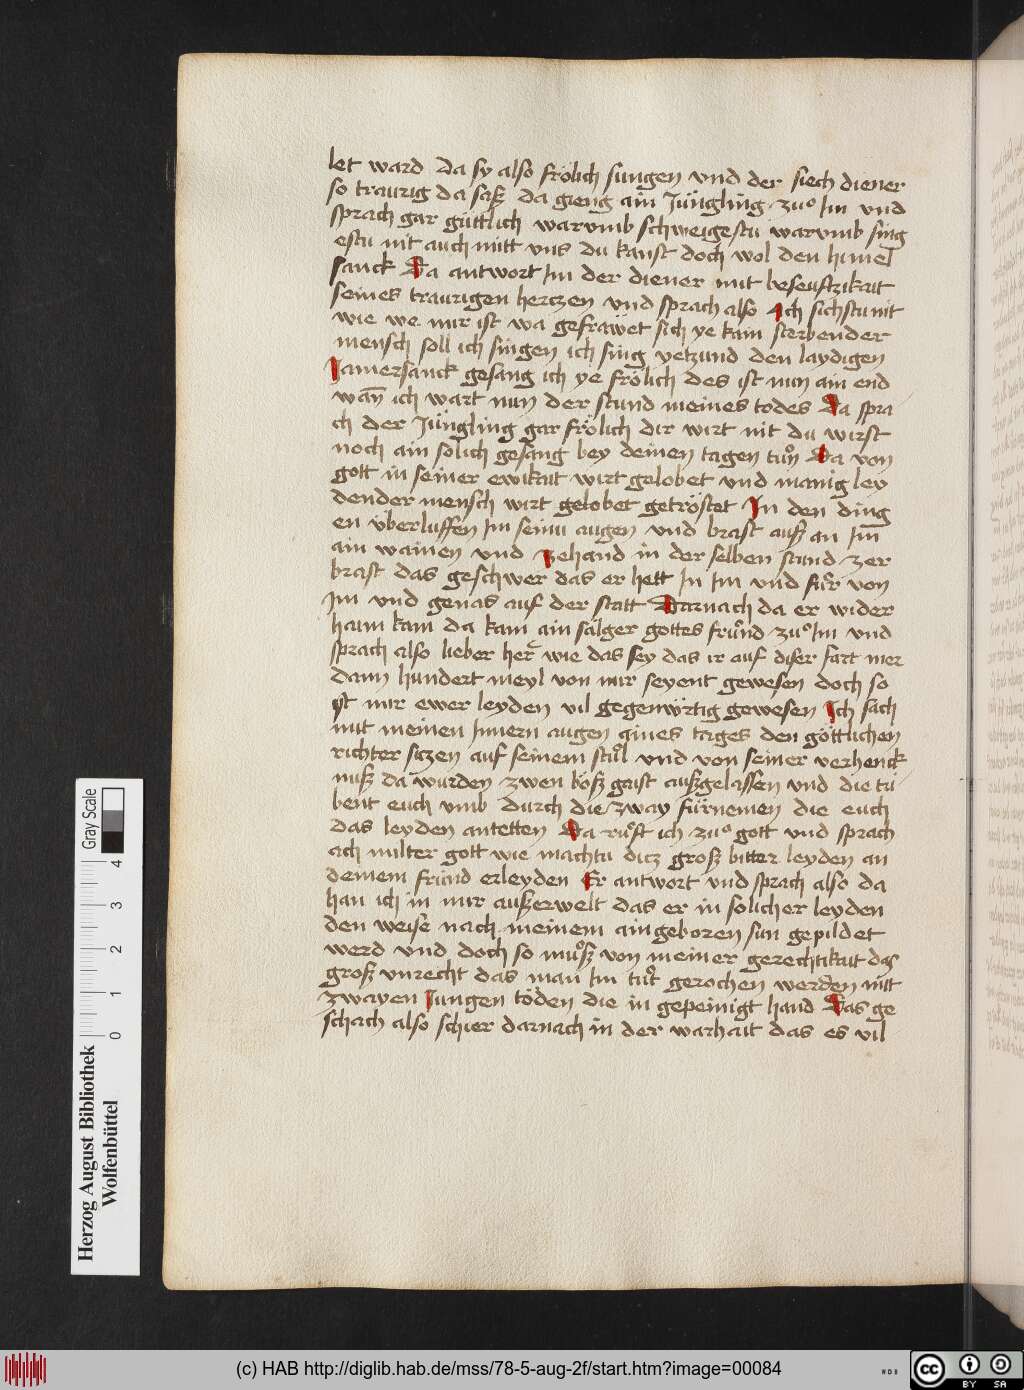 let ward da sy also frölich sungen vnd der siech diener
so traurig da saß da gieng ain Jüngling zuͦ Im vnd
sprach gar güttlich warvmb schweigestu warvmb sing
estu nit auch mitt vns du kanst doch wol den himel
sanck Da antwort Im der diener mit beseuftzikait
seines traurigen hertzen vnd sprach also Ich sichstu nit
wie we mir ist wa gefräwet sich ye kain sterbender
mensch soll ich singen ich sing yetzund den laydigen
Jamersanck gesang ich ye frölich des ist nun ain end
wañ ich wart nun der stund meines todes Da spra
ch der Jüngling gar frölich dir wirt nit du wirst
noch ain solich gesang bey deinen tagen tuͦn Da von
gott in seiner ewikait wirt gelobet vnd manig ley
dender mensch wirt gelobet getröstet In den ding
en überluffen Im seinu augen vnd brast auß an Im
ain wainen vnd zehand in der selben stund zer
brast das geschwer das er hett In Im vnd fuͦr von
Im vnd genas auf der statt Darnach da er wider
haim kam da kam ain sälger gottes fruͦnd zuͦ Im vnd
sprach also lieber her wie das sey das ir auf diser fart mer
dann hundert meyl von mir seyent gewesen doch so
ist mir ewer leyden vil gegenwürtig gewesen Ich sach
mit meinen Innern augen aines tages den göttlichen
richter siczen auf seinem stuͦl vnd von seiner verhenck
nuß da wurden zwen böß gaist außgelassen vnd die tri
bent euch vmb durch die zway fürnemen die euch
das leyden antetten Da ruͦft ich zuͦ gott vnd sprach
ach milter gott wie machtu dicz groß bitter leyden an
deinem fründ erleyden Er antwort vnd sprach also da
han ich in mir außerwelt das er in solicher leyden
den weise nach meinem aingeboren sun gepildet
werd vnd doch so muͦß von meiner gerechtikait das
groß vnrecht das man Im tuͦt gerochen werden mit
zwayen Jungen töden die in gepeinigt hand Das ge
schach also schier darnach in der warhait das es vil
Gray Scale
0 1 2 3 4
Herzog August Bibliothek
Wolfenbüttel
(c) HAB http://diglib.hab.de/mss/78-5-aug-2f/start.htm?image=00084
WDB
cc BY SA